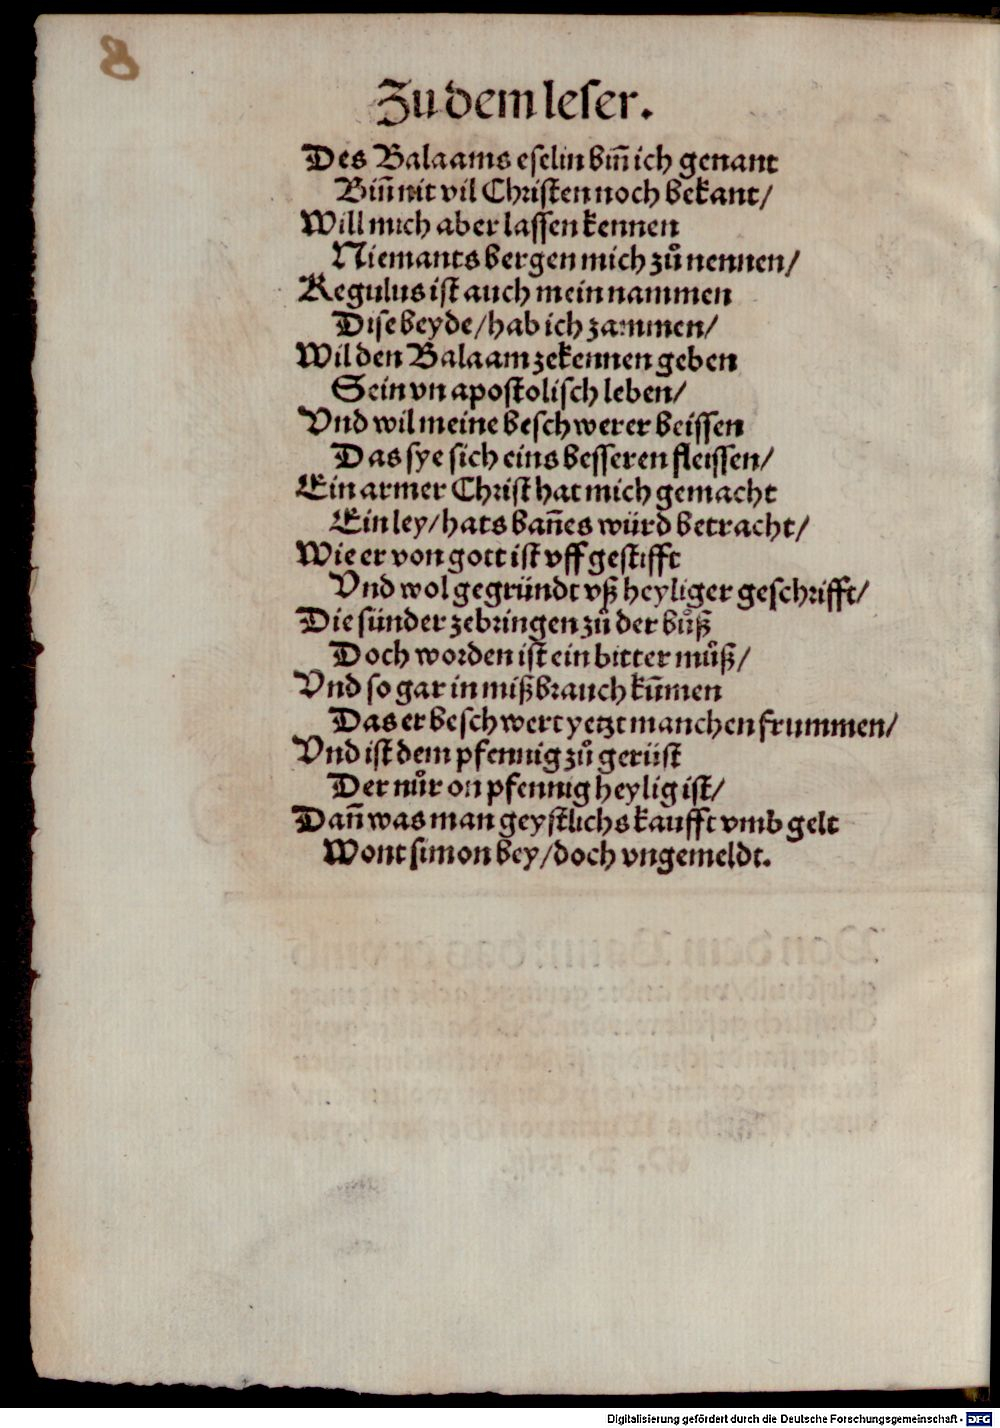 8
Zu dem leser.
Des Balaams eselin biñ ich genant
Biñ nit vil Christen noch bekant/
Will mich aber lassen kennen
Niemants bergen mich zů nennen/
Regulus ist auch mein nammen
Dise beyde/hab ich zammen/
Wil den Balaam zekennen geben
Sein vn apostolisch leben/
Vnd wil meine beschwerer beissen
Das sye sich eins besseren fleissen/
Ein armer Christ hat mich gemacht
Ein ley/hats bañes würd betracht/
Wie er von gott ist vff gestifft
Vnd wol gegründt vß heyliger geschrifft/
Die sünder zebringen zů der bůß
Doch worden ist ein bitter můß/
Vnd so gar in mißbrauch kūmen
Das er beschwert yetzt manchen frummen/
Vnd ist dem pfennig zů gerüst
Der nůr on pfennig heylig ist/
Dañ was man geystlichs kaufft vmb gelt
Wont simon bey/doch vngemeldt.
Digitalisierung gefördert durch die Deutsche Forschungsgemeinschaft - DFG